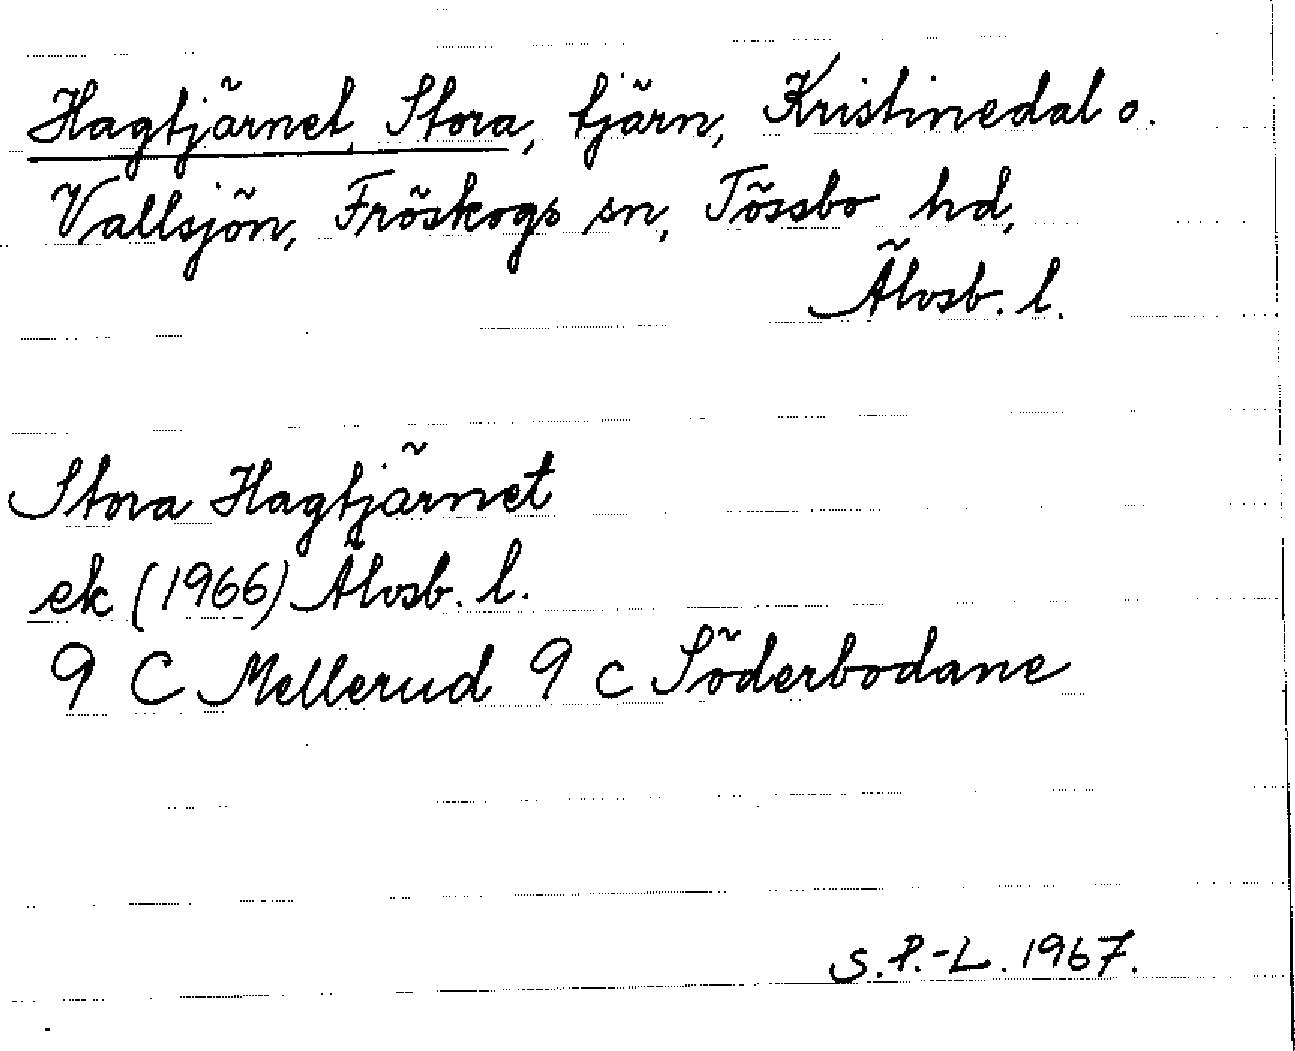 Hagtjärnet, Stora, tjärn, Kristinedal o.
Vallsjön, Fröskogs sn, Tössbo hd,
Älvsb. l.
Stora Hagtjärnet
ek (1966) Älvsb. l.
9 C Mellerud 9 c Söderbodane
S.P.-L. 1967.